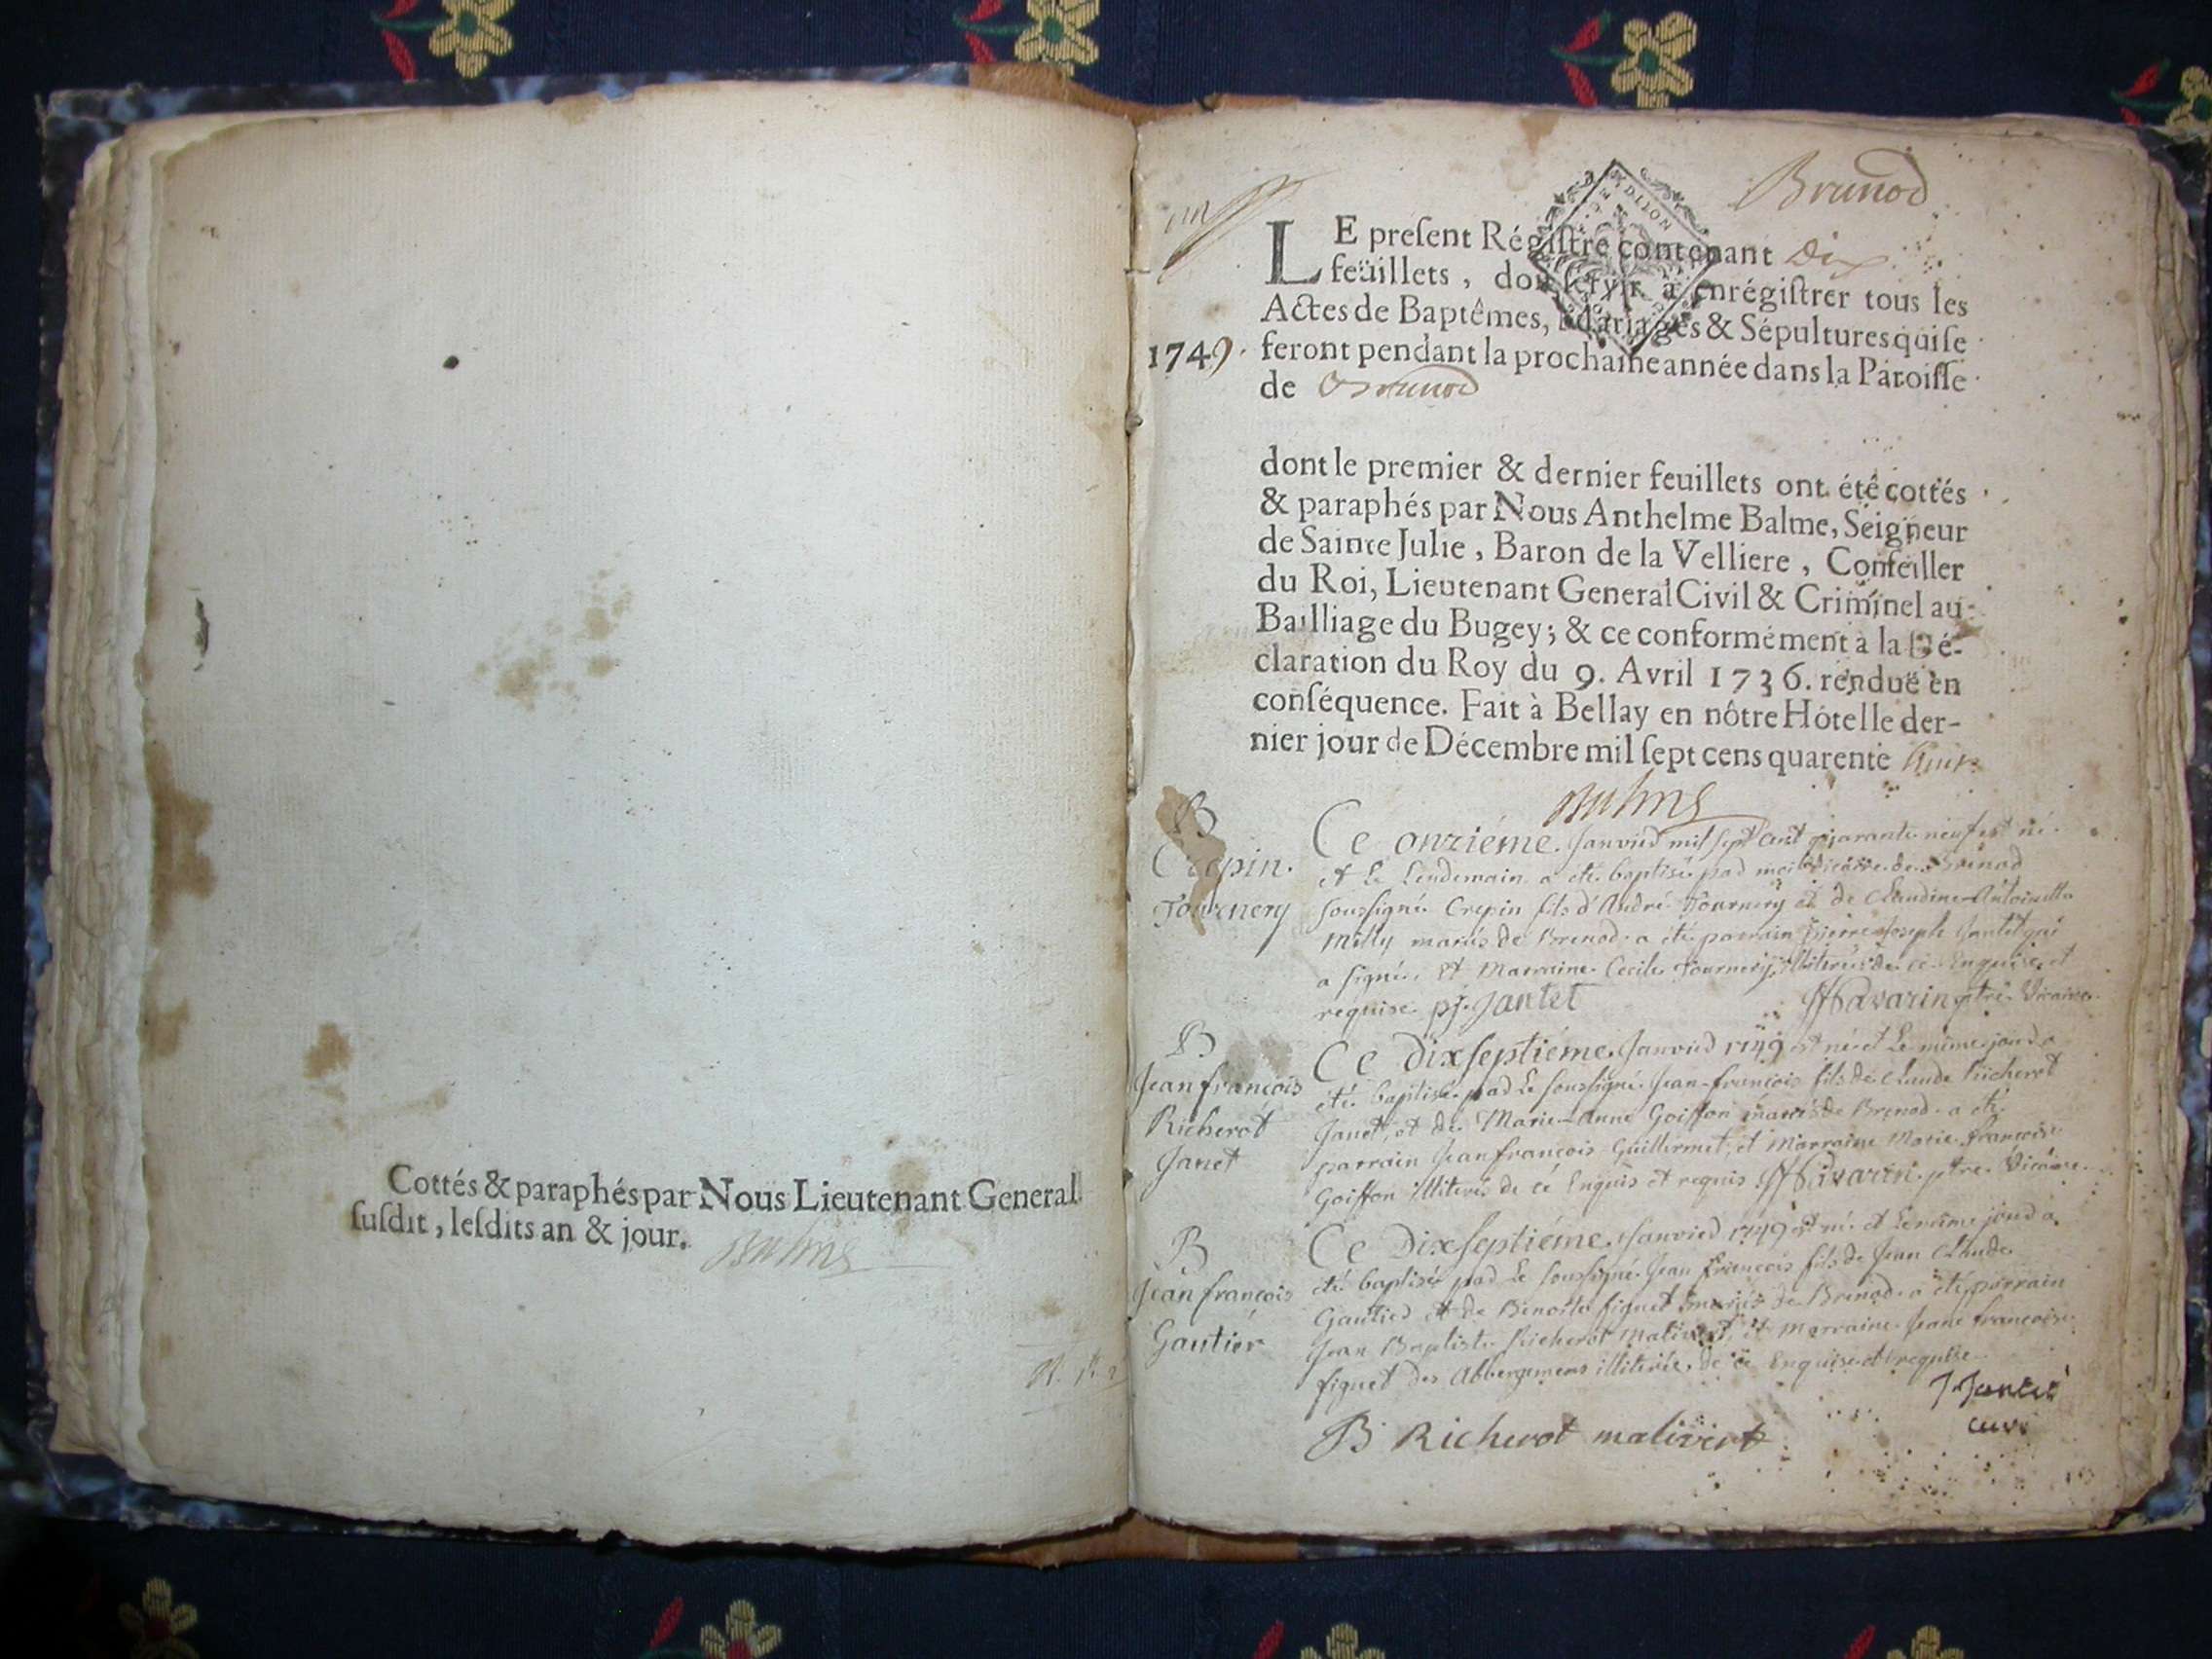 Cottés & paraphés par Nous Lieutenant General
ſuſdit, leſdits an & jour.
Balme
Brenod
LE preſent Régiſtre contenant Dix
feüillets, doit ſervir à enrégiſtrer tous les
Actes de Baptêmes, Mariages & Sépultures qui ſe
1749. feront pendant la prochaine année dans la Paroiſſe
de Brenod
dont le premier & dernier feuillets ont été cottés
& paraphés par Nous Anthelme Balme, Seigneur
de Sainte Julie, Baron de la Velliere, Conſeiller
du Roi, Lieutenant General Civil & Criminel au
Bailliage du Bugey; & ce conformément à la Dé-
claration du Roy du 9. Avril 1736. renduë en
conſéquence. Fait à Bellay en nôtre Hôtel le der-
nier jour de Décembre mil ſept cens quarente huit
Balme
B
Crepin
Tournery
Ce onziéme Janvier mil sept cent quarante neuf est né
et le lendemain a été baptisé par moi vicaire de Brenod
soussigné Crepin fils d'André Tournery et de Claudine Antoinette
Milly mariés de Brenod a été parrain Pierre Joseph Jantet qui
a signé, et Marraine Cecile Tournery illiterés de ce Enquise et
requise pj. Jantet Savarin ptre Vicaire
B
Jean françois
Richerot
Janet
Ce Dixseptiéme Janvier 1749 est né et le même jour a
été baptisé par le soussigné Jean-françois fils de Claude Richerot
Janet, et de Marie-Anne Goiffon mariés de Brenod a été
parrain Jean françois Guillermet, et Marraine Marie françoise
Goiffon illiterés de ce Enquis et requis Savarin ptre Vicaire
B
Jean françois
Gautier
Ce Dixseptiéme Janvier 1749 est né et le même jour a
été baptisé par le soussigné Jean françois fils de Jean Claude
Gautier et de Benoite figuet mariés de Brenod a été parrain
Jean Baptiste Richerot Malivert, et Marraine Jeane françoise
figuet des Abbergemens illiterée de ce Enquise et requise
J Jantet
curé
B Richerot malivert